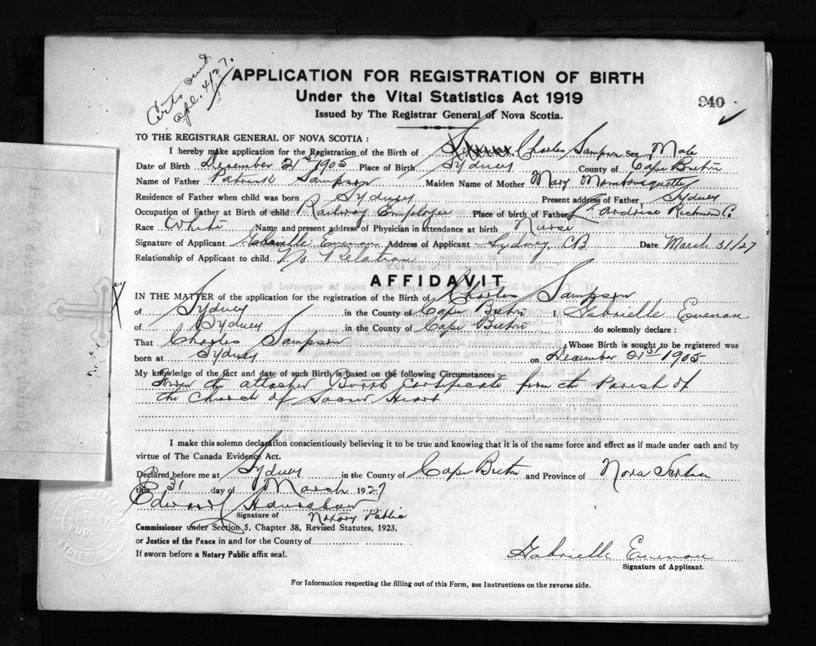 Certs sent
Apl. 4/27.
APPLICATION FOR REGISTRATION OF BIRTH
Under the Vital Statistics Act 1919
Issued by The Registrar General of Nova Scotia.
940
TO THE REGISTRAR GENERAL OF NOVA SCOTIA:
I hereby make application for the Registration of the Birth of Charles Sampson Sex Male
Date of Birth December 21st 1905 Place of Birth Sydney County of Cape Breton
Name of Father Patrick Sampson Maiden Name of Mother Mary
Residence of Father when child was born Sydney Present address of Father Sydney
Occupation of Father at Birth of child Railway Employee Place of birth of Father L'ardoise Richmond Co.
Race White Name and present address of Physician in attendance at birth Nurse
Signature of Applicant Gabrielle Address of Applicant Sydney CB Date March 31/27
Relationship of Applicant to child No Relation
AFFIDAVIT
IN THE MATTER of the application for the registration of the Birth of Charles Sampson
of Sydney in the County of Cape Bretn I, Gabrielle
of Sydney in the County of Cape Bretn do solemnly declare:
That Charles Sampson Whose Birth is sought to be registered was
born at Sydney on December 21st 1905
My knowledge of the fact and date of such Birth is based on the following Circumstances:-
From the attached Birth Certificate from the Parish of
the Church of Sacred Heart
I make this solemn declaration conscientiously believing it to be true and knowing that it is of the same force and effect as if made under oath and by
virtue of The Canada Evidence Act.
Declared before me at Sydney in the County of Cape Bretn and Province of Nova Scotia
this 31 day of March 1927
Edward
Signature of Notary Public
Commissioner under Section 5, Chapter 38, Revised Statutes, 1923,
or Justice of the Peace in and for the County of
If sworn before a Notary Public affix seal.
Gabrielle
Signature of Applicant.
For Information respecting the filling out of this Form, see Instructions on the reverse side.